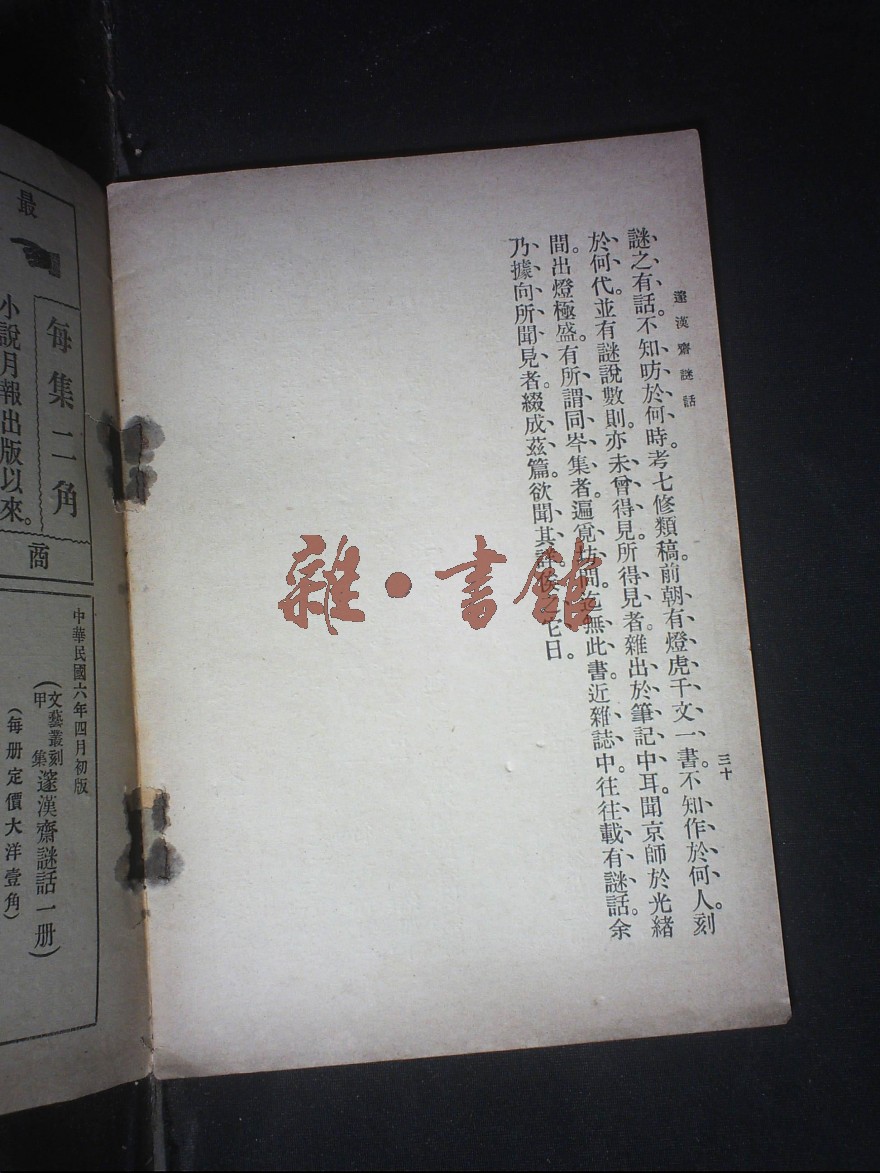 邃漢齋謎話
三十
謎之有話。不知昉於何時。考七修類稿。前朝有燈虎千文一書。不知作於何人。刻
於何代。並有謎說數則。亦未曾得見。所得見者。雜出於筆記中耳。聞京師於光緒
間。出燈極盛。有所謂同岑集者。遍覓坊間。迄無此書。近雜誌中。往往載有謎話。余
乃據向所聞見者。綴成茲篇。欲聞其詳。俟之它日。
雜·書館
最
每集二角
小說月報出版以來。
商
中華民國六年四月初版
(文藝叢刻甲集邃漢齋謎話一册)
(每册定價大洋壹角)